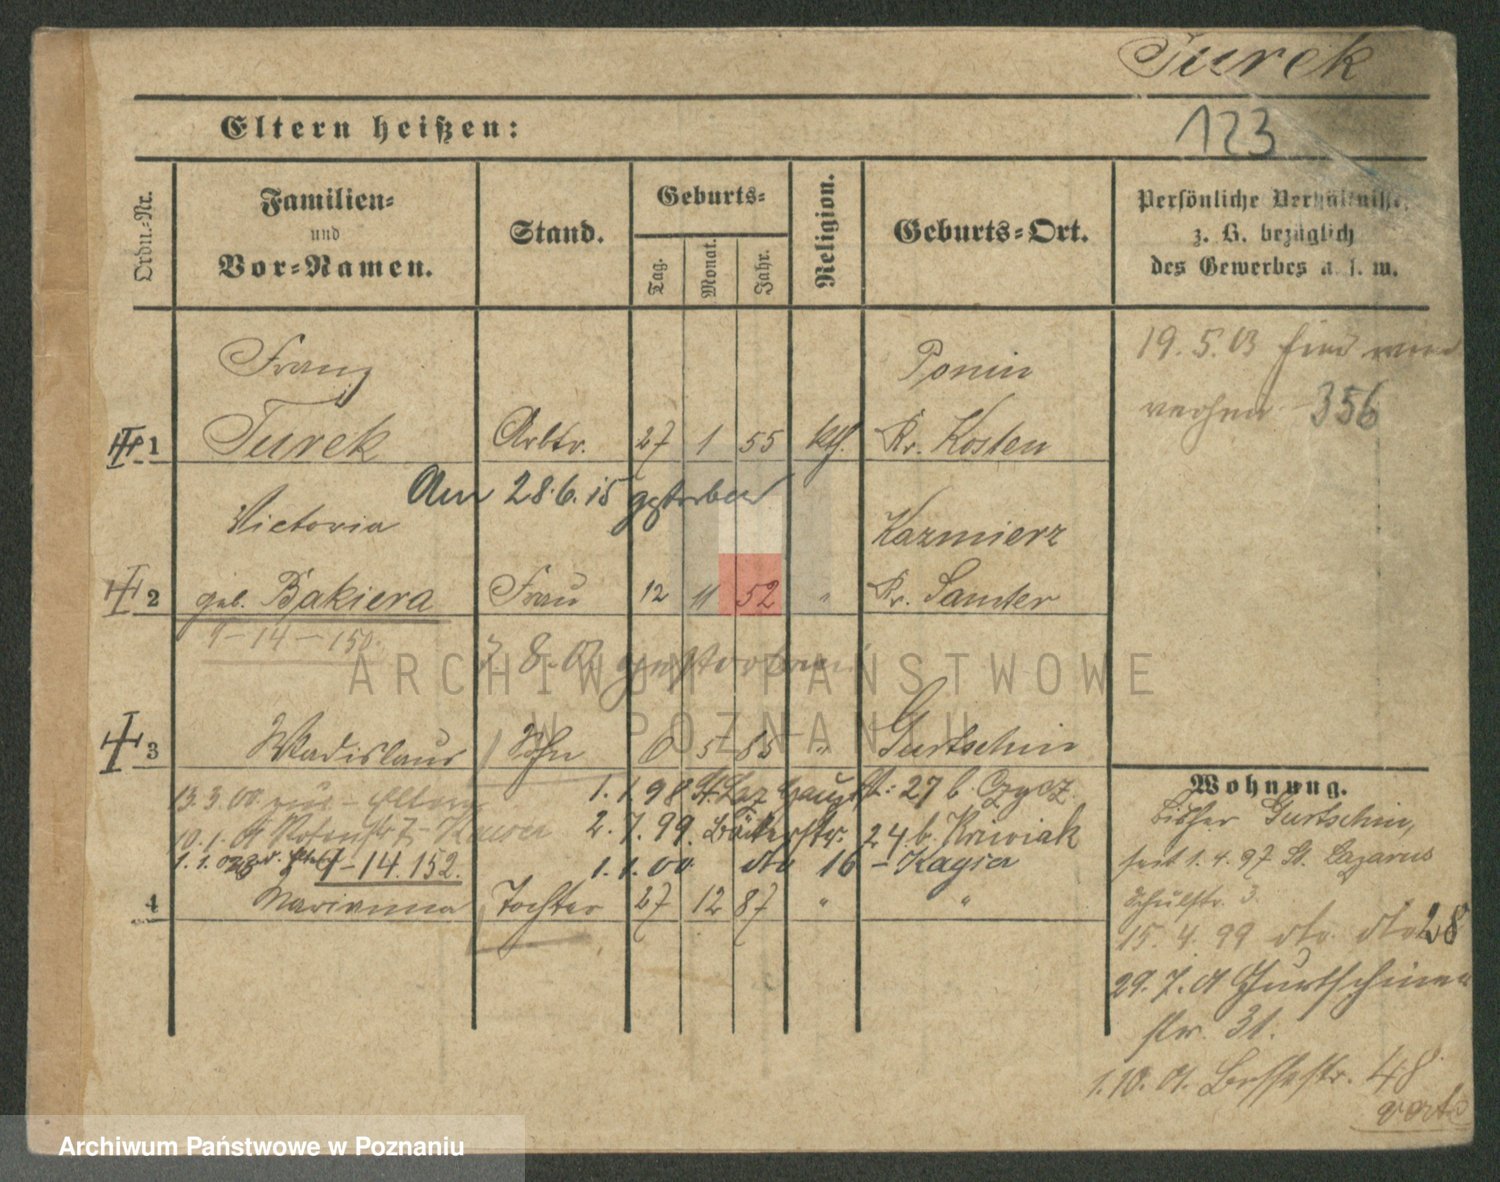 Turek
Eltern heißen:
123
Ordn.-Nr.
Familien-
und
Vor-Namen.
Stand.
Geburts-
Tag.
Monat.
Jahr.
Religion.
Geburts-Ort.
Persönliche Verhältnisse,
z. B. bezüglich
des Gewerbes u. s. w.
Franz
Ponin
19. 5. 03
356
1 Turek Arbtr. 27 1 55 kth. Kr. Kosten
Am 28.6.15 gestorben
Victoria
Kazmierz
2 geb. Bakiera Frau 12 11 52 " Kr. Samter
9-14-150
gestorben
ARCHIWUM PAŃSTWOWE
W POZNANIU
3 Wladislaus Sohn 6 5 85 " Gurtschin
13.3.00 Eltern
1.1.98 St. Laz Hauptstr: 27 b. Czycz
10.1.01
2.7.99 Bäckerstr. 24 b. Kriviak
1.1.02 9-14.152.
1.1.00 dto 16 - Kagia
4 Marianna Tochter 27 12 87 " "
Wohnung.
bisher Gurtschin,
seit 1.4.97 St. Lazarus
Schulstr. 3
15. 4. 99 dto. dto 28
29. 7. 01 Gurtschiner
str. 31.
1.10. 01. 48
Archiwum Państwowe w Poznaniu